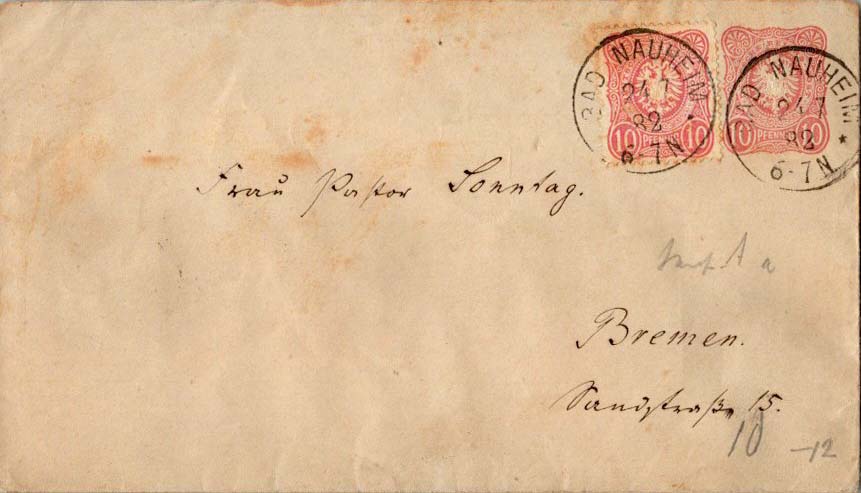 BAD NAUHEIM *
24 7
82
6-7N
10 PFENNIG 10
BAD NAUHEIM *
24 7
82
6-7N
10 PFENNIG 10
Frau Pastor Sonntag.
Bremen.
Sandstraße 15.
10
-12